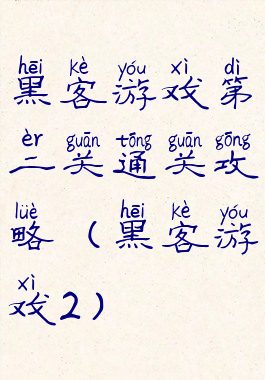 hēi kè yóu xì dì
黑客游戏第
èr guān tōng guān gōng
二关通关攻
lüè hēi kè yóu
略（黑客游
xì
戏2）